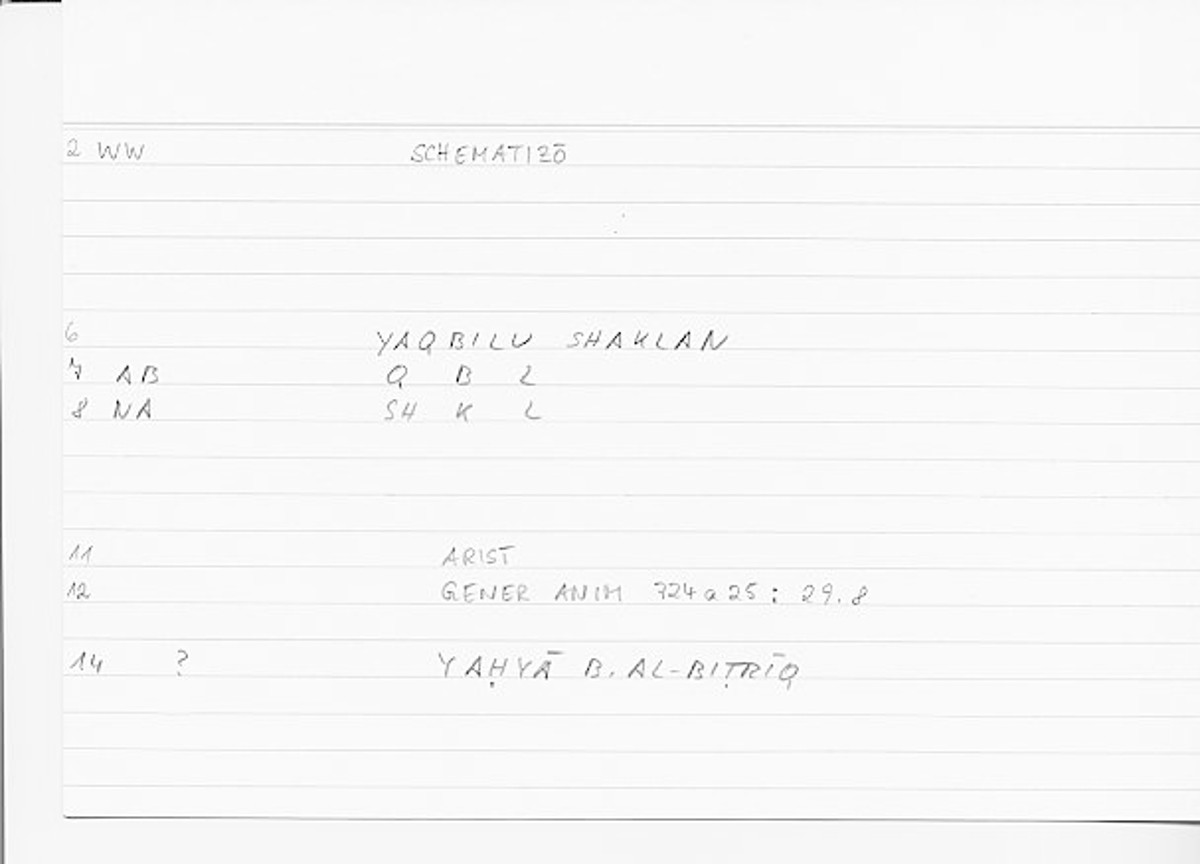 2 WW SCHEMATIZŌ
6 YAQBILU SHAKLAN
7 AB Q B L
8 NA SH K L
11 ARIST
12 GENER ANIM 724a25: 29.8
14 ? YAḤYĀ B. AL-BIṬRĪQ